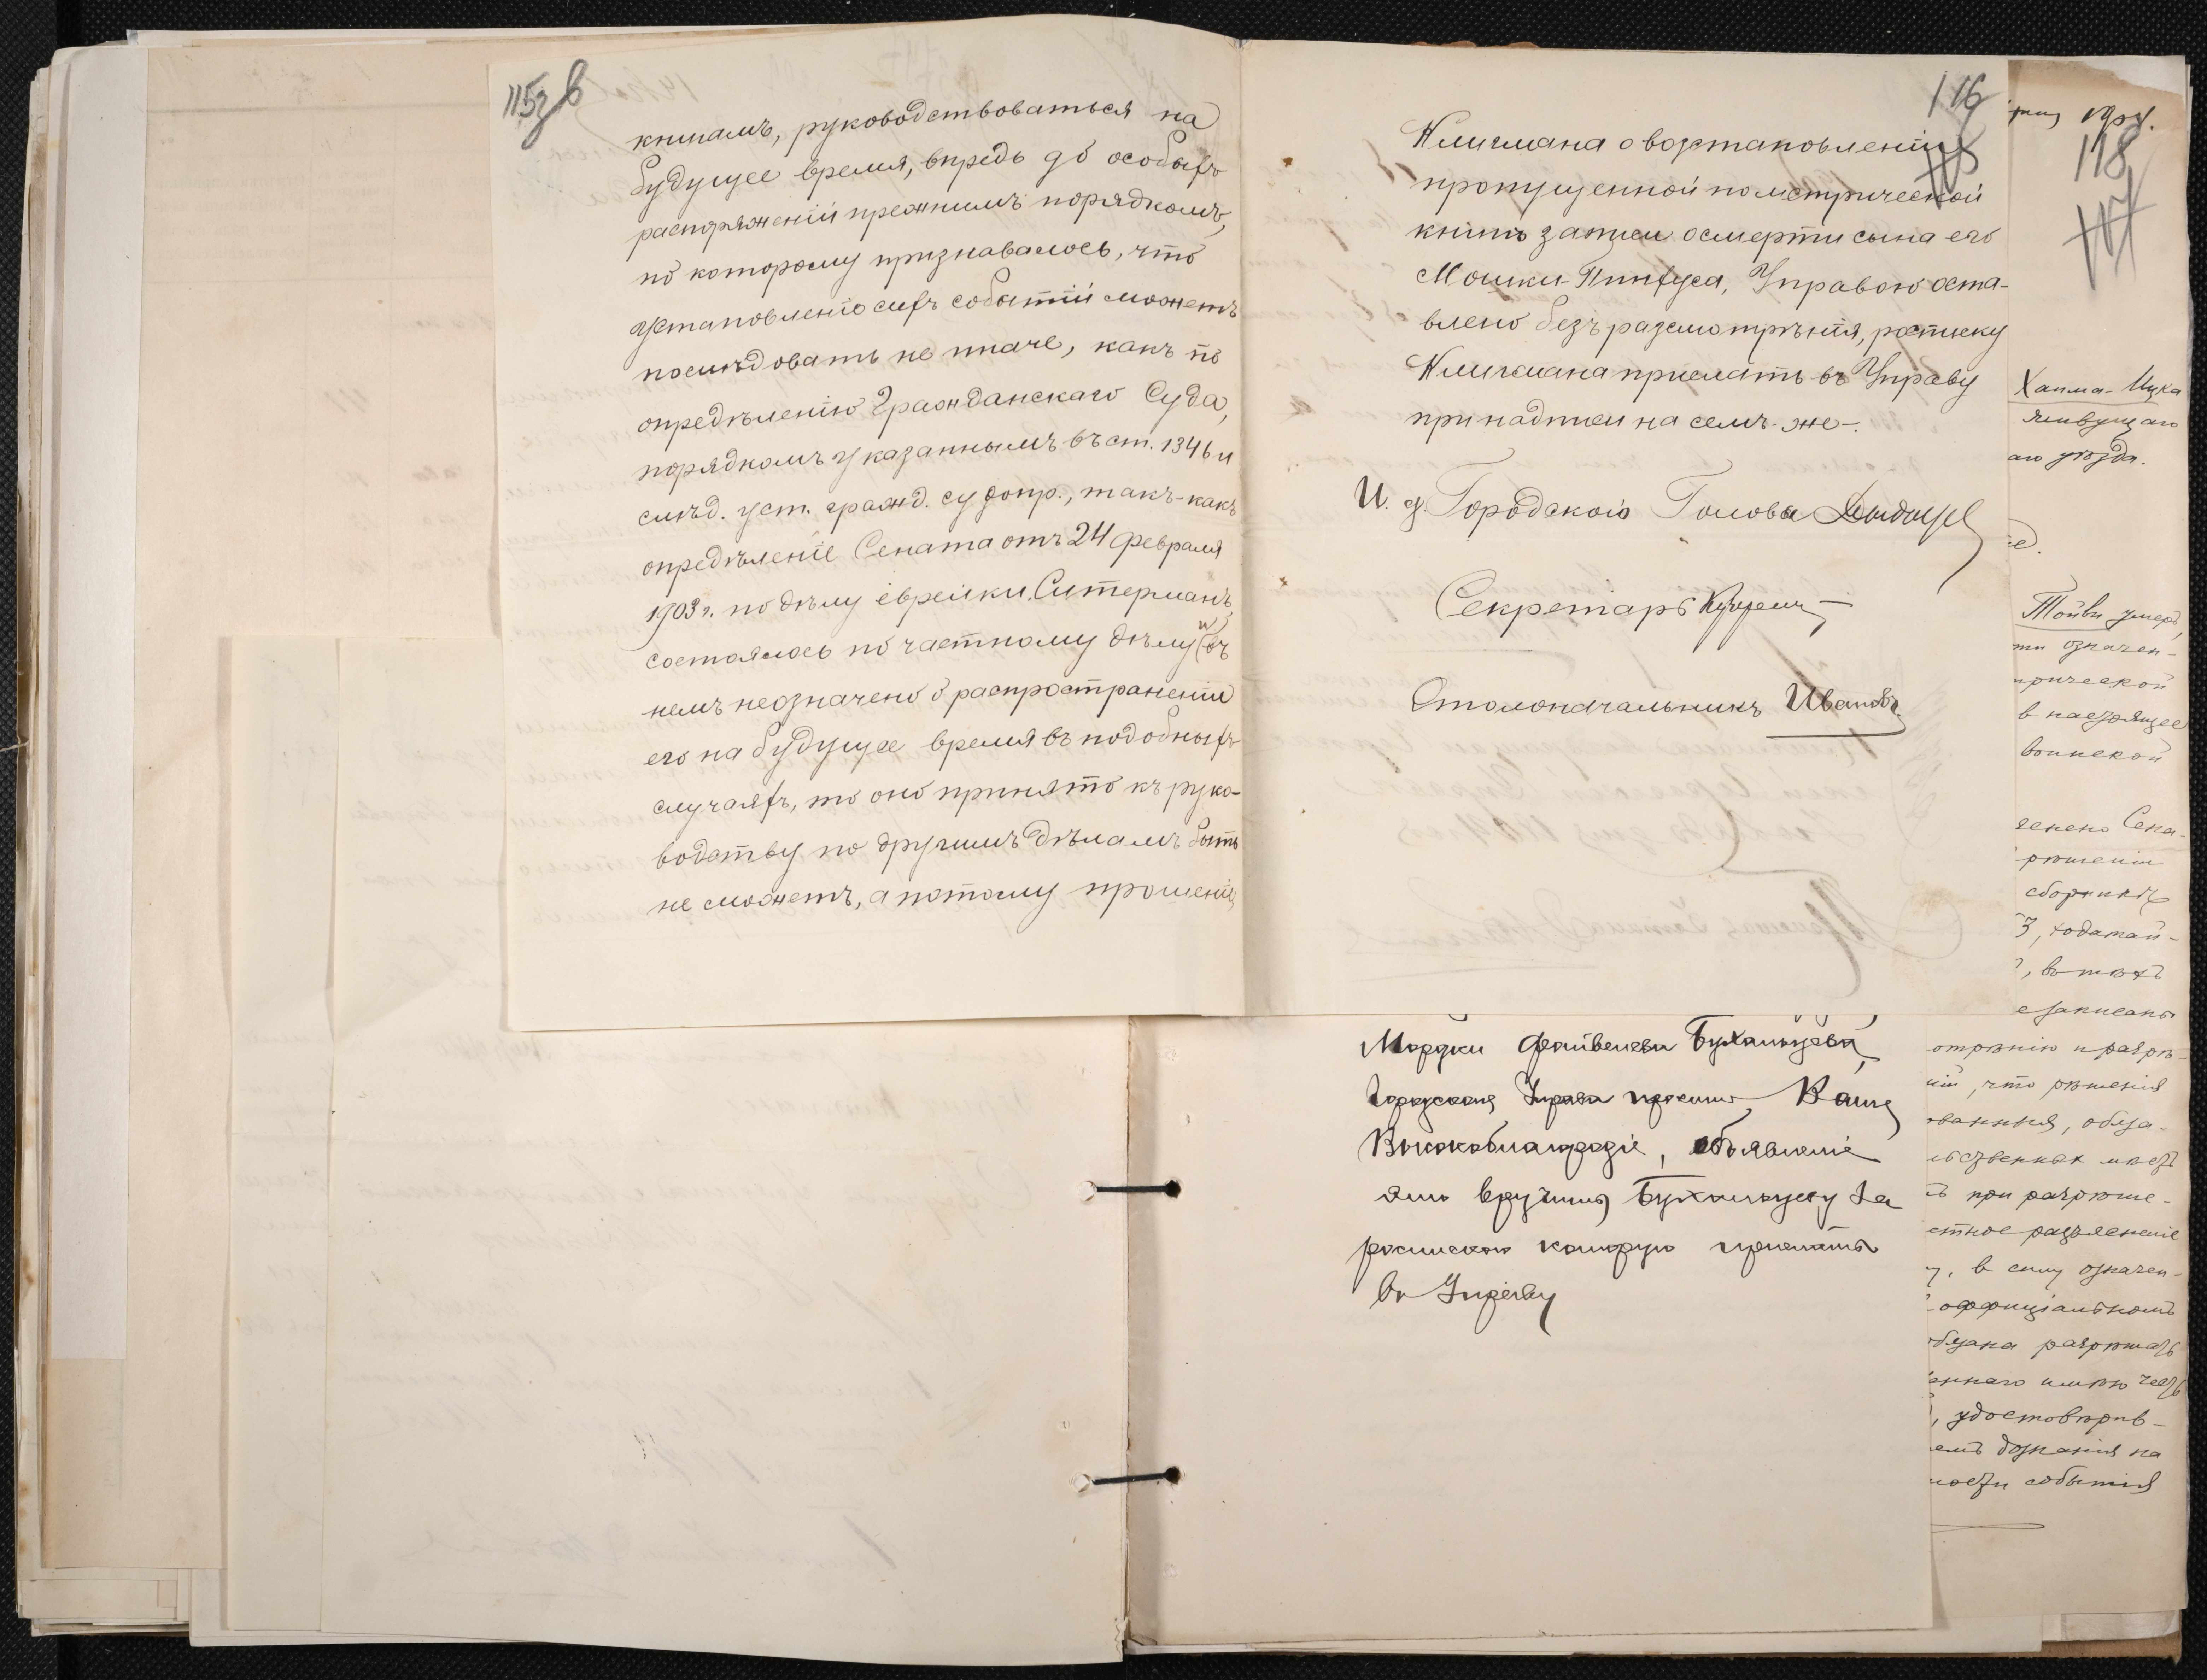 115 зв
книгамъ, руководствоваться на
будущее время, впредь до особыхъ
распоряженій прежнимъ порядкомъ,
по которому признавалось, что
установленіе сихъ событій можетъ
послѣдовать не иначе, какъ по
опредѣленію Гражданскаго Суда,
порядкомъ указаннымъ въ ст. 1346 и
слѣд. уст. гражд. судопр., такъ-какъ
опредѣленіе Сената отъ 24 февраля
1903 г. по дѣлу еврейки Ситерманъ
состоялось по частному дѣлу и въ
немъ не означено о распространеніи
его на будущее время въ подобныхъ
случаяхъ, то оно принято къ руко-
водству по другимъ дѣламъ быть
не можетъ, а потому прошеніе
116
Клигмана о возстановленіи
пропущенной по метрической
книгѣ записи о смерти сына его
Мошки-Пинхуса, Управою оста-
влено безъ разсмотрѣнія, росписку
Клигмана прислать въ Управу
при надписи на семъ-же.
И. д. Городского Головы
Секретарь
Столоначальникъ Ивановъ
Мордки Файвелева Бухальцева,
Городская Управа проситъ Ваше
Высокоблагородіе, объявленіе
это вручить Бухальцеву за
роспискою которую прислать
въ Управу
118
Хаима-Ицка
живущаго
аго уѣзда.
Тойви умеръ,
ти означен-
рической
в настоящее
воинской
ченено Сена-
рѣшеніи
сборникѣ
3, ходатай-
, въ тѣхъ
е записаны
отрѣнію и разрѣ-
ній, что рѣшенія
ованныя, обяза-
льственных мѣстъ
ъ при разрѣше-
стное разъясненіе
у, в силу означен-
оффиціальномъ
обязана разрѣшать
еннаго имѣю честь
, удостовѣрив-
емъ дознанія на
ности событія